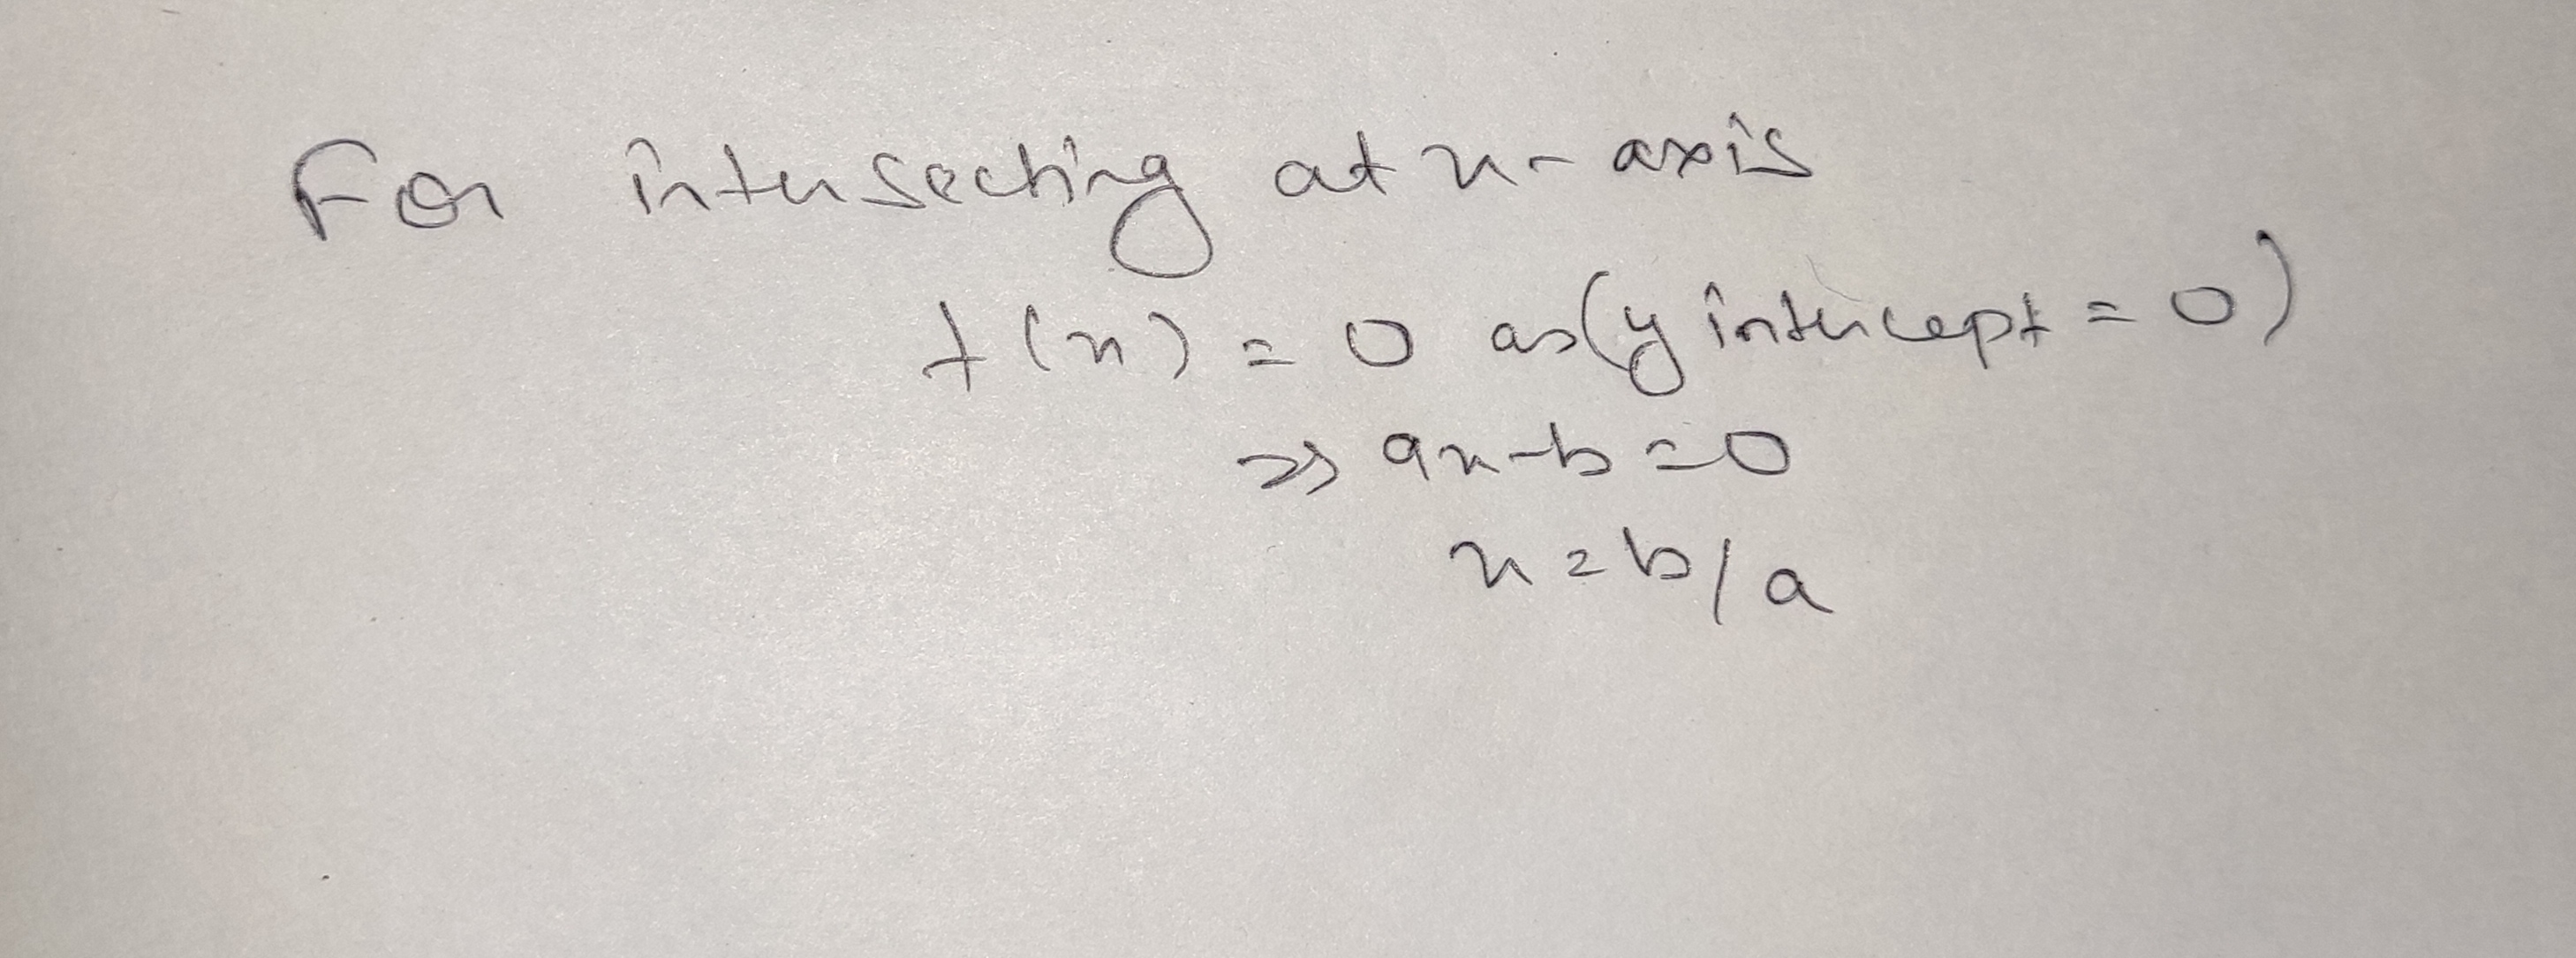 For intersecting at x-axis
f(x) = 0 as (y intercept = 0)
=> ax-b=0
x=b/a